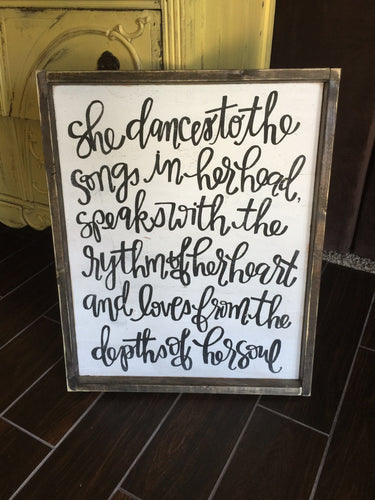 she dances to the
songs in her head,
speaks with the
rythm of her heart
and loves from the
depths of her soul